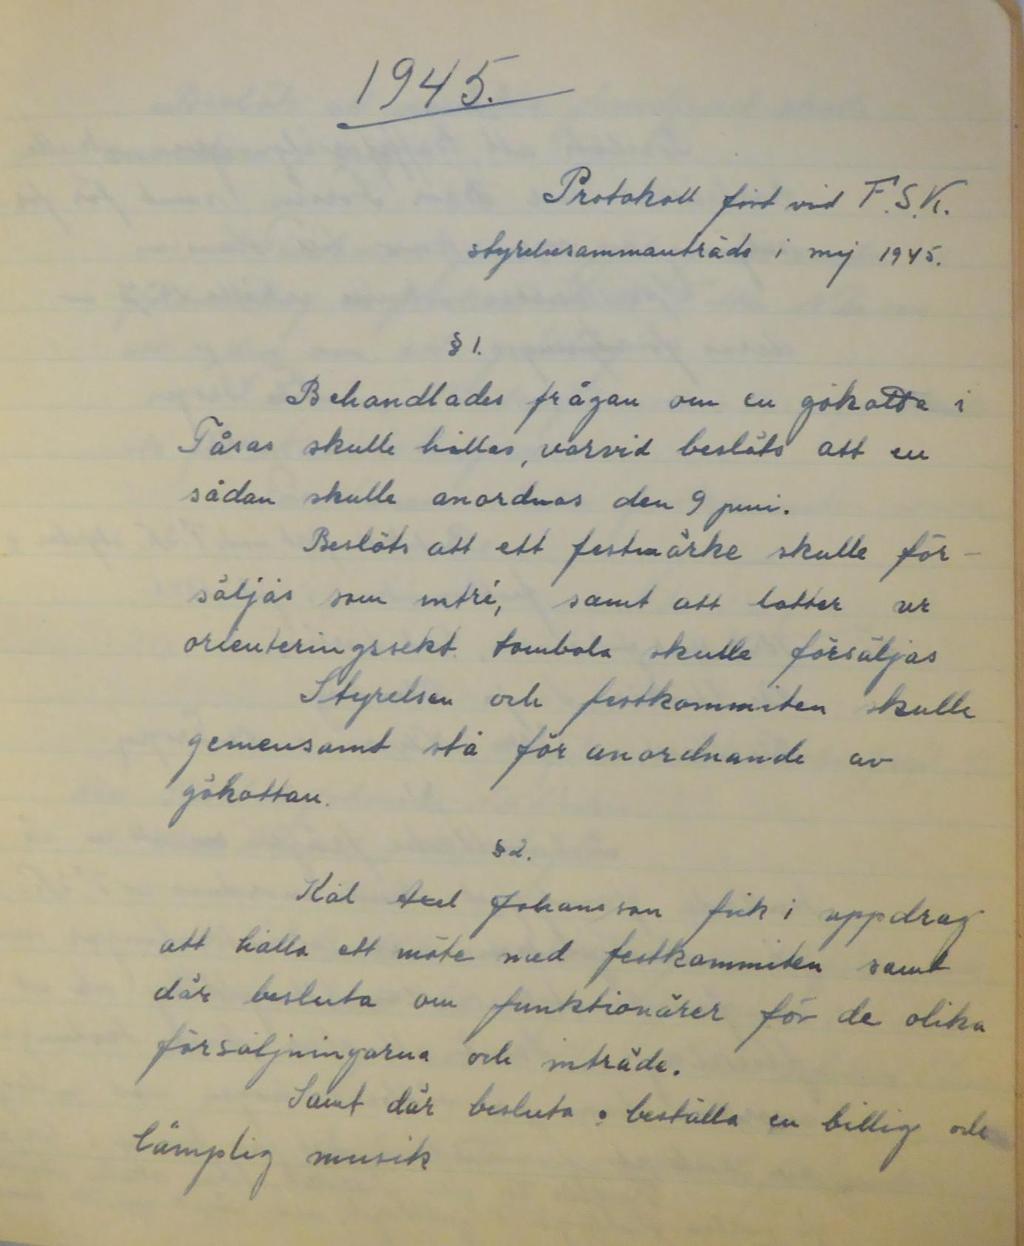 1945.
Protokoll fört vid F.S.K.
styrelsesammanträde i maj 1945.
§ 1.
Behandlades frågan om en gökotta i
Tåsas skulle hållas, varvid beslöts att en
sådan skulle anordnas den 9 juni.
Beslöts att ett festmärke skulle för-
säljas som intré, samt att lotter ur
orienteringssekt. tombola skulle försäljas
Styrelsen och festkommiten skulle
gemensamt stå för anordnande av
gökottan.
§ 2.
Axel Johansson fick i uppdrag
att hålla ett möte med festkommiten samt
där besluta om funktionärer för de olika
försäljningarna och inträde.
Samt där besluta o beställa en billig och
lämplig musik